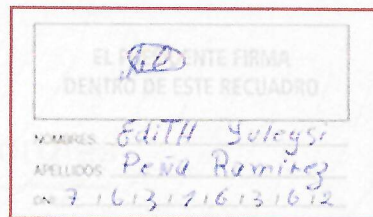 EL PRESIDENTE FIRMA
DENTRO DE ESTE RECUADRO
NOMBRES EdiTH Yuleysi
APELLIDOS Peña Ramirez
DNI 7 6 3 1 6 3 6 2